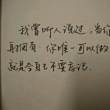 我曾听人说过，当你
再拥有，你唯一可以做
就是令自己不要忘记。